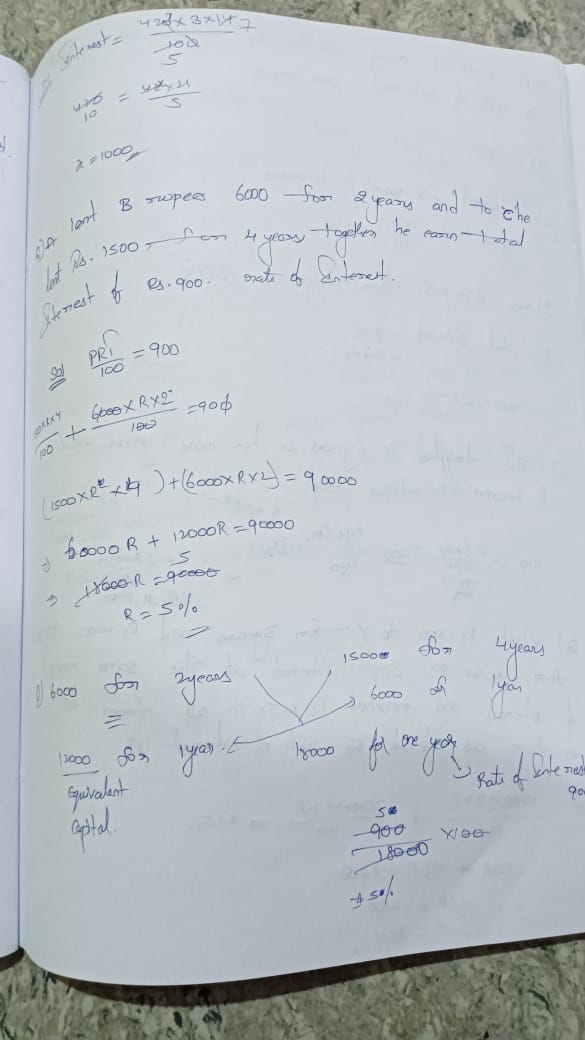 Interest = 420 x 3 x 14 7
100
5
420/10 = 42x21/5
x = 1000
Q) A lent B rupees 6000 for 2 years and to C he
lent Rs. 1500 for 4 years together he earn total
Interest of Rs. 900. rate of Interest.
Sol PRT/100 = 900
/100 + 6000 x R x 2/100 = 900
(1500 x R x 4) + (6000 x R x 2) = 90000
⇒ 6000 R + 12000R = 90000
5
⇒ 18000 R = 90000
R = 5%
6000 for 2 years
15000 for 4 years
=
6000 for 1 year
12000 for 1 year.
18000 for one year
Equivalent
Capital.
Rate of Interest
90
50
900/18000 x 100
5%